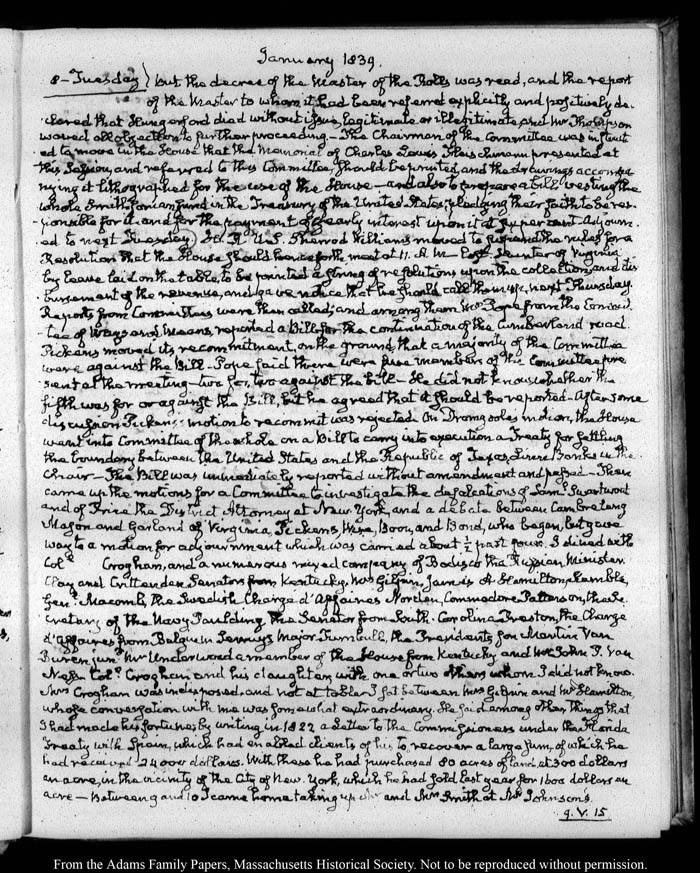 January 1839.
8 – Tuesday) but the decree of the Master of the Rolls was read, and the report
of the Master to whom it had been referred explicitly and positively de-
clared that Hungerford died without issue, legitimate or illegitimate, and Mr Thompson
waved all objection to further proceeding – The Chairman of the Committee was instruct
ed to move in the House that the Memorial of Charles Lewis Fleischmann presented at
this Session, and referred to this Committee, should be printed, and the drawings accompa
nying it lithographed for the use of the House – and also to prepare a bill, vesting the
whole Smithsonian fund in the Treasury of the United States, pledging their faith to be res-
ponsible for it and for the payment of yearly interest upon it at 6 per cent – Adjourn
ed to next Tuesday) H. R. U.S. Sherrod Williams moved to suspend the rules for a
Resolution that the House should henceforth meet at 11. A.M – of Virginia
by leave laid on the table, to be printed a string of resolutions upon the collection, and dis
bursement of the revenue, and gave notice that he should call them up next Thursday.
Reports from Committees were then called; and among them Mr Pope from the Commit-
tee of Ways and Means, reported a Bill for the continuation of the Cumberland road.
Pickens moved its recommitment, on the ground that a majority of the Committee
were against the Bill – Pope said there were five members of the Committee pre
sent at the meeting – two for, two against the bill – He did not know whether the
fifth was for or against the Bill, but he agreed that it should be reported – After some
discussion Pickens's motion to recommit was rejected On Dromgoole's motion, the House
went into Committee of the whole on a Bill to carry into execution a Treaty for settling
the boundary between the United States and the Republic of Texas, Linn Banks in the
Chair – The Bill was immediately reported without amendment and passed – Then
came up the motions for a Committee to investigate the defalcations of Saml Swartwout
and of Price the District Attorney at New York, and a debate between Cambreleng
Mason and Garland of Virginia, Pickens, Wise, Boon, and Bond, who began, but gave
way to a motion for adjournment which was carried about ½ past four. I dined with
Coll Croghan, and a numerous mixed company of Bodisco the Russian Minister
Clay and Crittenden Senators from Kentucky, Mrs Gilpin, James A. Hamilton, Kemble,
Genl Macomb, the Swedish Chargé d'Affaires Nordin, Commodore Patterson, the Se-
cretary of the Navy Paulding the Senator from South-Carolina Preston, the Chargé
d'affaires from Belgium Major Turnbull, the President's son Martin Van
Buren junr Mr Underwood a member of the House from Kentucky and Mr John P. Van
Ness Coll Croghan and his daughter, with one or two others whom I did not know.
Mrs Croghan was indisposed, and not at table. I sat between Mrs Gilpin and Mr Hamilton,
whose conversation with me was somewhat extraordinary. He said among other things that
I had made his fortune, by writing in 1822 a letter to the Commissioners under the Florida
Treaty with Spain, which had enabled clients of his to recover a large sum, of which he
had received 24000 dollars. With these he had purchased 80 acres of land, at 300 dollars
an acre, in the vicinity of the City of New York, which he had sold last year, for 1500 dollars an
acre – Between 9 and 10 I came home taking up Mr and Mrs Smith at Mr Johnson's
9. V. 15
From the Adams Family Papers, Massachusetts Historical Society. Not to be reproduced without permission.